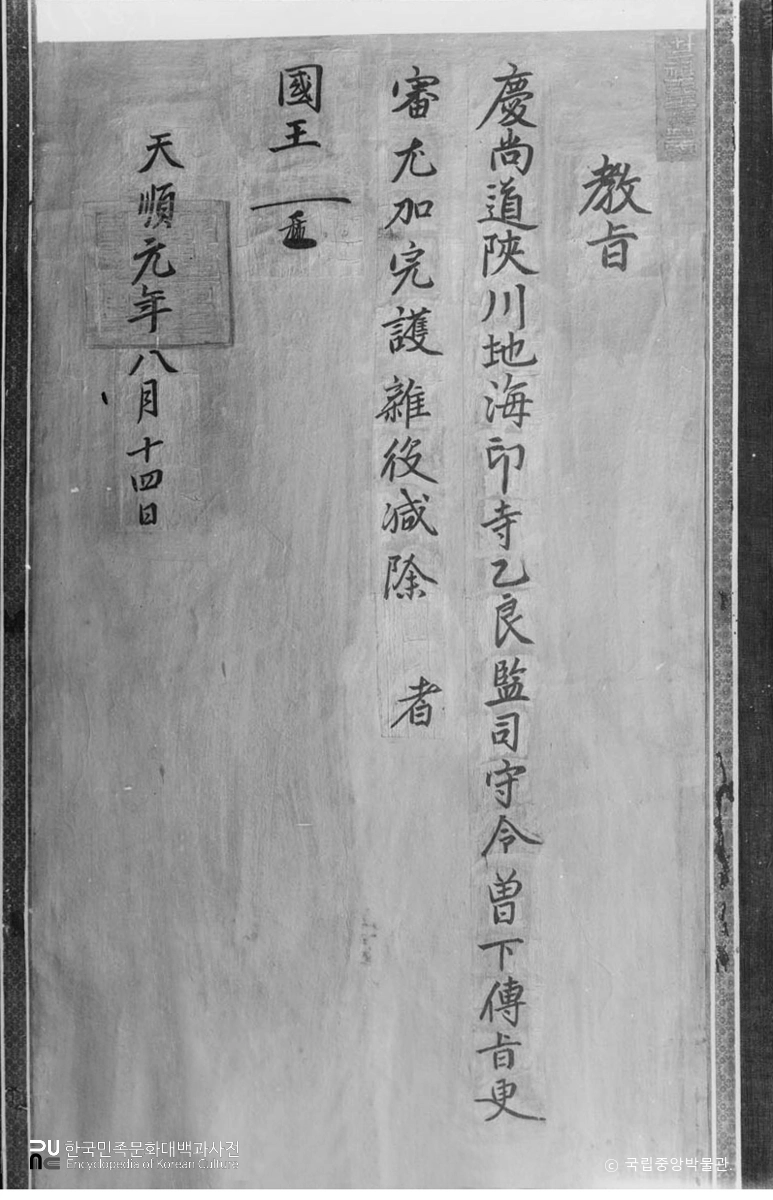 教旨
慶尚道陜川地海印寺乙良監司守令曾下傳旨更
審尤加完護雜役减除 者
國王
天順元年八月十四日
한국민족문화대백과사전
Encyclopedia of Korean Culture
© 국립중앙박물관.